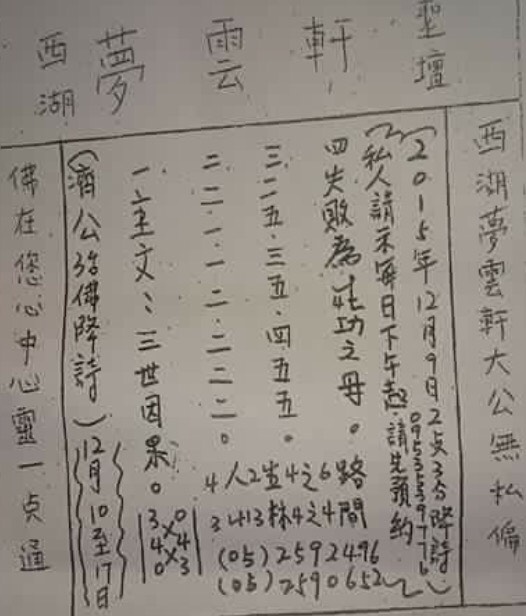 西湖夢雲軒聖壇
西湖夢雲軒大公無私偏
(2015年12月9日2点3分降詩)
(私人請示每日下午起.請先預約)
四失敗為成功之母。
三二五.三五.四五五。
二二一一二.二二二。
一、主文:三世因果。
(濟公活佛降詩)
{12月10至17日}
佛在您心中心靈一点通
4人2生4之6路
3443林4之4間
(05)2592496
(05)2590652
30
4×4
03